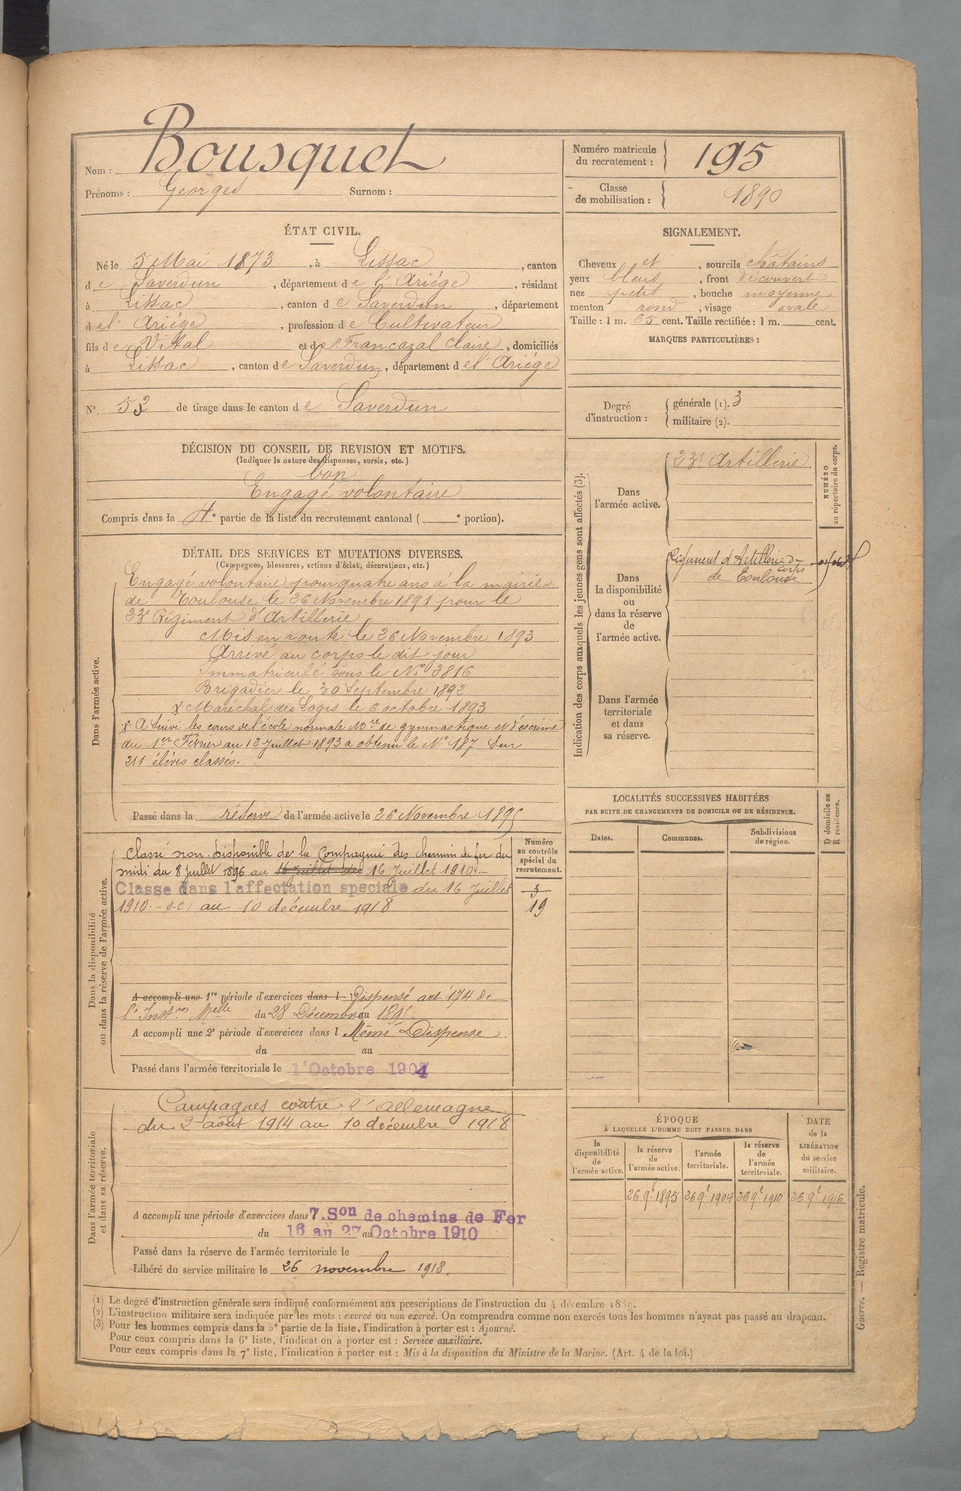 Nom : Bousquet
Prénoms : Georges Surnom :
Numéro matricule du recrutement : 195
Classe de mobilisation : 1890
ÉTAT CIVIL.
Né le 5 Mai 1873, à Lissac, canton
de Saverdun, département de l'Ariége, résidant
à Lissac, canton de Saverdun, département
de l'Ariége, profession de Cultivateur
fils de Vital et de Francazal Claire, domiciliés
à Lissac, canton de Saverdun, département de l'Ariége
N° 52 de tirage dans le canton de Saverdun
SIGNALEMENT.
Cheveux et, sourcils châtains
yeux bleus, front découvert
nez petit, bouche moyenne
menton rond, visage ovale
Taille : 1 m. 65 cent. Taille rectifiée : 1 m. cent.
MARQUES PARTICULIÈRES :
Degré d'instruction : générale (1). 3
militaire (2).
DÉCISION DU CONSEIL DE REVISION ET MOTIFS.
(Indiquer la nature des dispenses, sursis, etc.)
bon
Engagé volontaire
Compris dans la 4e partie de la liste du recrutement cantonal ( e portion).
DÉTAIL DES SERVICES ET MUTATIONS DIVERSES.
(Campagnes, blessures, actions d'éclat, décorations, etc.)
Dans l'armée active.
Engagé volontaire pour quatre ans à la mairie
de Toulouse le 26 Novembre 1891 pour le
23e Régiment d'Artillerie
Mis en route le 26 Novembre 1893
Arrivé au corps le dit jour
Immatriculé sous le N° 2816
Brigadier le 30 Septembre 1892
x Maréchal des Logis le 6 octobre 1893
x A suivi les cours de l'école normale Mre de gymnastique et d'escrime
du 1er Février au 12 Juillet 1893 a obtenu le N° 187 sur
211 élèves classés.
Passé dans la réserve de l'armée active le 26 Novembre 1895
Indication des corps auxquels les jeunes gens sont affectés (3).
Dans l'armée active.
23e Artillerie
NUMÉRO au répertoire du corps.
Dans la disponibilité ou dans la réserve de l'armée active.
Régiment d'Artillerie de corps
de Toulouse
Dans l'armée territoriale et dans sa réserve.
LOCALITÉS SUCCESSIVES HABITÉES
PAR SUITE DE CHANGEMENTS DE DOMICILE OU DE RÉSIDENCE.
Dates. Communes. Subdivisions de région.
D domicile ou R résidence.
Dans la disponibilité ou dans la réserve de l'armée active.
Numéro au contrôle spécial du recrutement.
Classé non-disponible de la Compagnie des chemins de fer du
midi du 8 juillet 1896 au 16 Juillet 1910.
Classé dans l'affectation spéciale du 16 Juillet
1910. au 10 décembre 1918
19
A accompli une 1re période d'exercices dans l Dispensé art 174 de
l'Instion Melle du 28 Décembre 1895
A accompli une 2e période d'exercices dans l Même Dispense
du au
Passé dans l'armée territoriale le 1 Octobre 1904
Dans l'armée territoriale et dans sa réserve.
Campagnes contre l'Allemagne
du 2 août 1914 au 10 décembre 1918
A accompli une période d'exercices dans 7. Son de chemins de Fer
du 16 au 27 au Octobre 1910
Passé dans la réserve de l'armée territoriale le
Libéré du service militaire le 26 novembre 1918.
ÉPOQUE
À LAQUELLE L'HOMME DOIT PASSER DANS
la disponibilité de l'armée active.
la réserve de l'armée active.
l'armée territoriale.
la réserve de l'armée territoriale.
DATE de la LIBÉRATION du service militaire.
26 9e 1895 26 9e 1904 26 9e 1910 26 9e 1916
(1) Le degré d'instruction générale sera indiqué conformément aux prescriptions de l'instruction du 4 décembre 1889.
(2) L'instruction militaire sera indiquée par les mots : exercé ou non exercé. On comprendra comme non exercés tous les hommes n'ayant pas passé au drapeau.
(3) Pour les hommes compris dans la 5e partie de la liste, l'indication à porter est : Ajourné.
Pour ceux compris dans la 6e liste, l'indication à porter est : Service auxiliaire.
Pour ceux compris dans la 7e liste, l'indication à porter est : Mis à la disposition du Ministre de la Marine. (Art. 4 de la loi.)
Guerre. — Registre matricule.